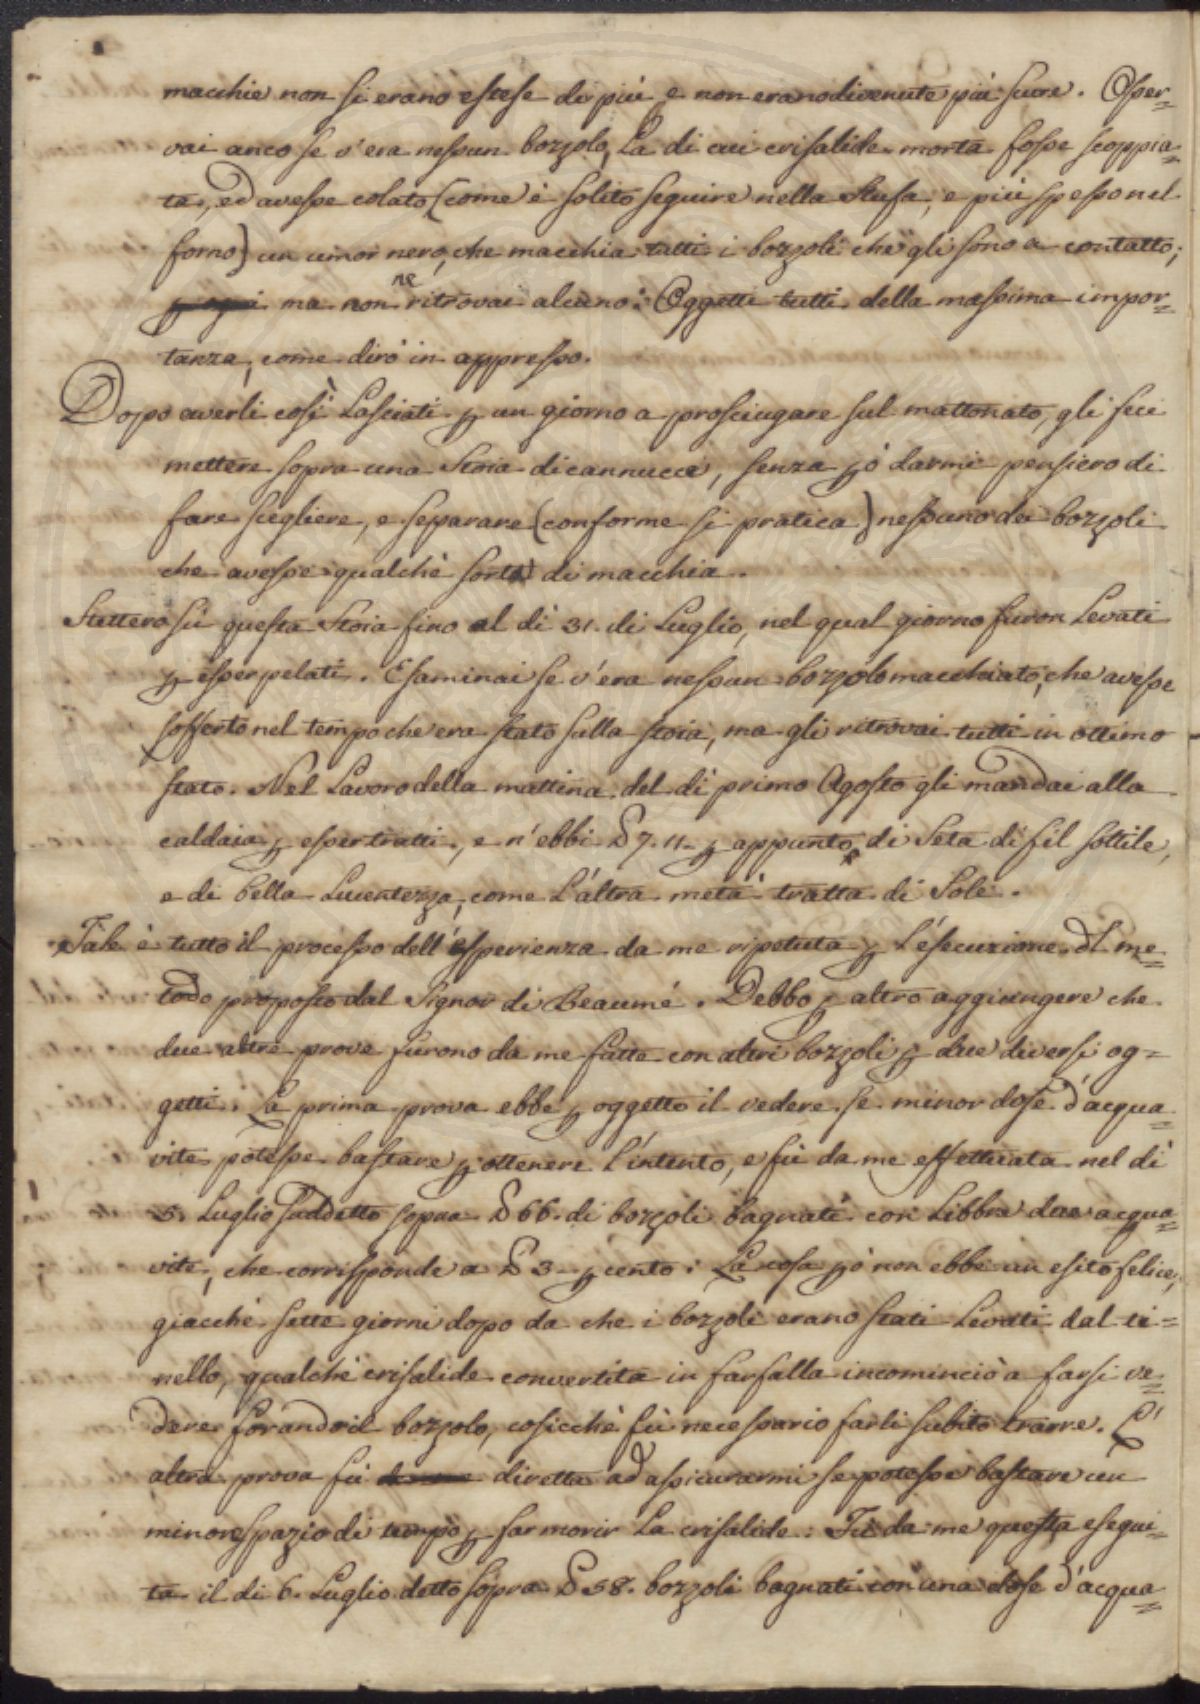 macchie non si erano estese di più, e non eranodivenute più scure. Osser=
vai anco se v'era nessun bozzolo, La di cui crisalide morta fosse scoppia=
ta, ed avesse colato (come è solito seguire nella Stufa, e più spesso nel
forno) un umor nero, che macchia tutti i bozzoli che gli sono a contatto;
ma non ne ritrovai alcuno: Oggetti tutti della massima impor=
tanza, come dirò in appresso.
Dopo averli così Lasciati p un giorno a prosciugare sul mattonato, gli feci
mettere sopra una Stoia di cannucce, senza pò darmi pensiero di
fare scegliere, e separare (conforme si pratica) nessuno dei bozzoli
che avesse qualchè sorta di macchia.
Stettero sù questa Stoia fino al dì 31. di Luglio, nel qual giorno furon Levati
p essere spelati. Esaminai se v'era nessun bozzolo macchiato, che avesse
sofferto nel tempo che era stato sulla stoia, ma gli ritrovai tutti in ottimo
stato. Nel Lavoro della mattina del dì primo Agosto gli mandai alla
caldaia p esser tratti, e n'ebbi £ 7. 11. p appunto di Seta di fil sottile,
e di bella Lucentezza, come L'altra metà tratta di Sole.
Tale è tutto il processo dell'esperienza da me ripetuta p L'esecuzione dl me=
todo proposto dal Signor di Beaumé. Debbo p altro aggiungere che
due altre prove furono da me fatte con altri bozzoli p due diversi og=
getti. La prima prova ebbe p oggetto il vedere se minor dose d'acqua=
vite potesse bastare p ottenere L'intento, e fù da me effettuata nel dì
5. Luglio suddetto sopra £ 66. di bozzoli bagnati con Libbre due acqua=
vite, che corrisponde a £ 3 p cento: La cosa pò non ebbe un esito felice,
giacchè sette giorni dopo da che i bozzoli erano stati Levati dal ti=
nello, qualchè crisalide convertita in farfalla incominciò a farsi ve=
dere forando il bozzolo, cosicchè fù necessario farli subito trarre. L'
altra prova fù diretta ad assicurarmi se potesse bastare un
minore spazio di tempo p far morir La crisalide: Fù da me questa esegui=
ta il dì 6. Luglio detto sopra £ 58. bozzoli bagnati con una dose d'acqua=